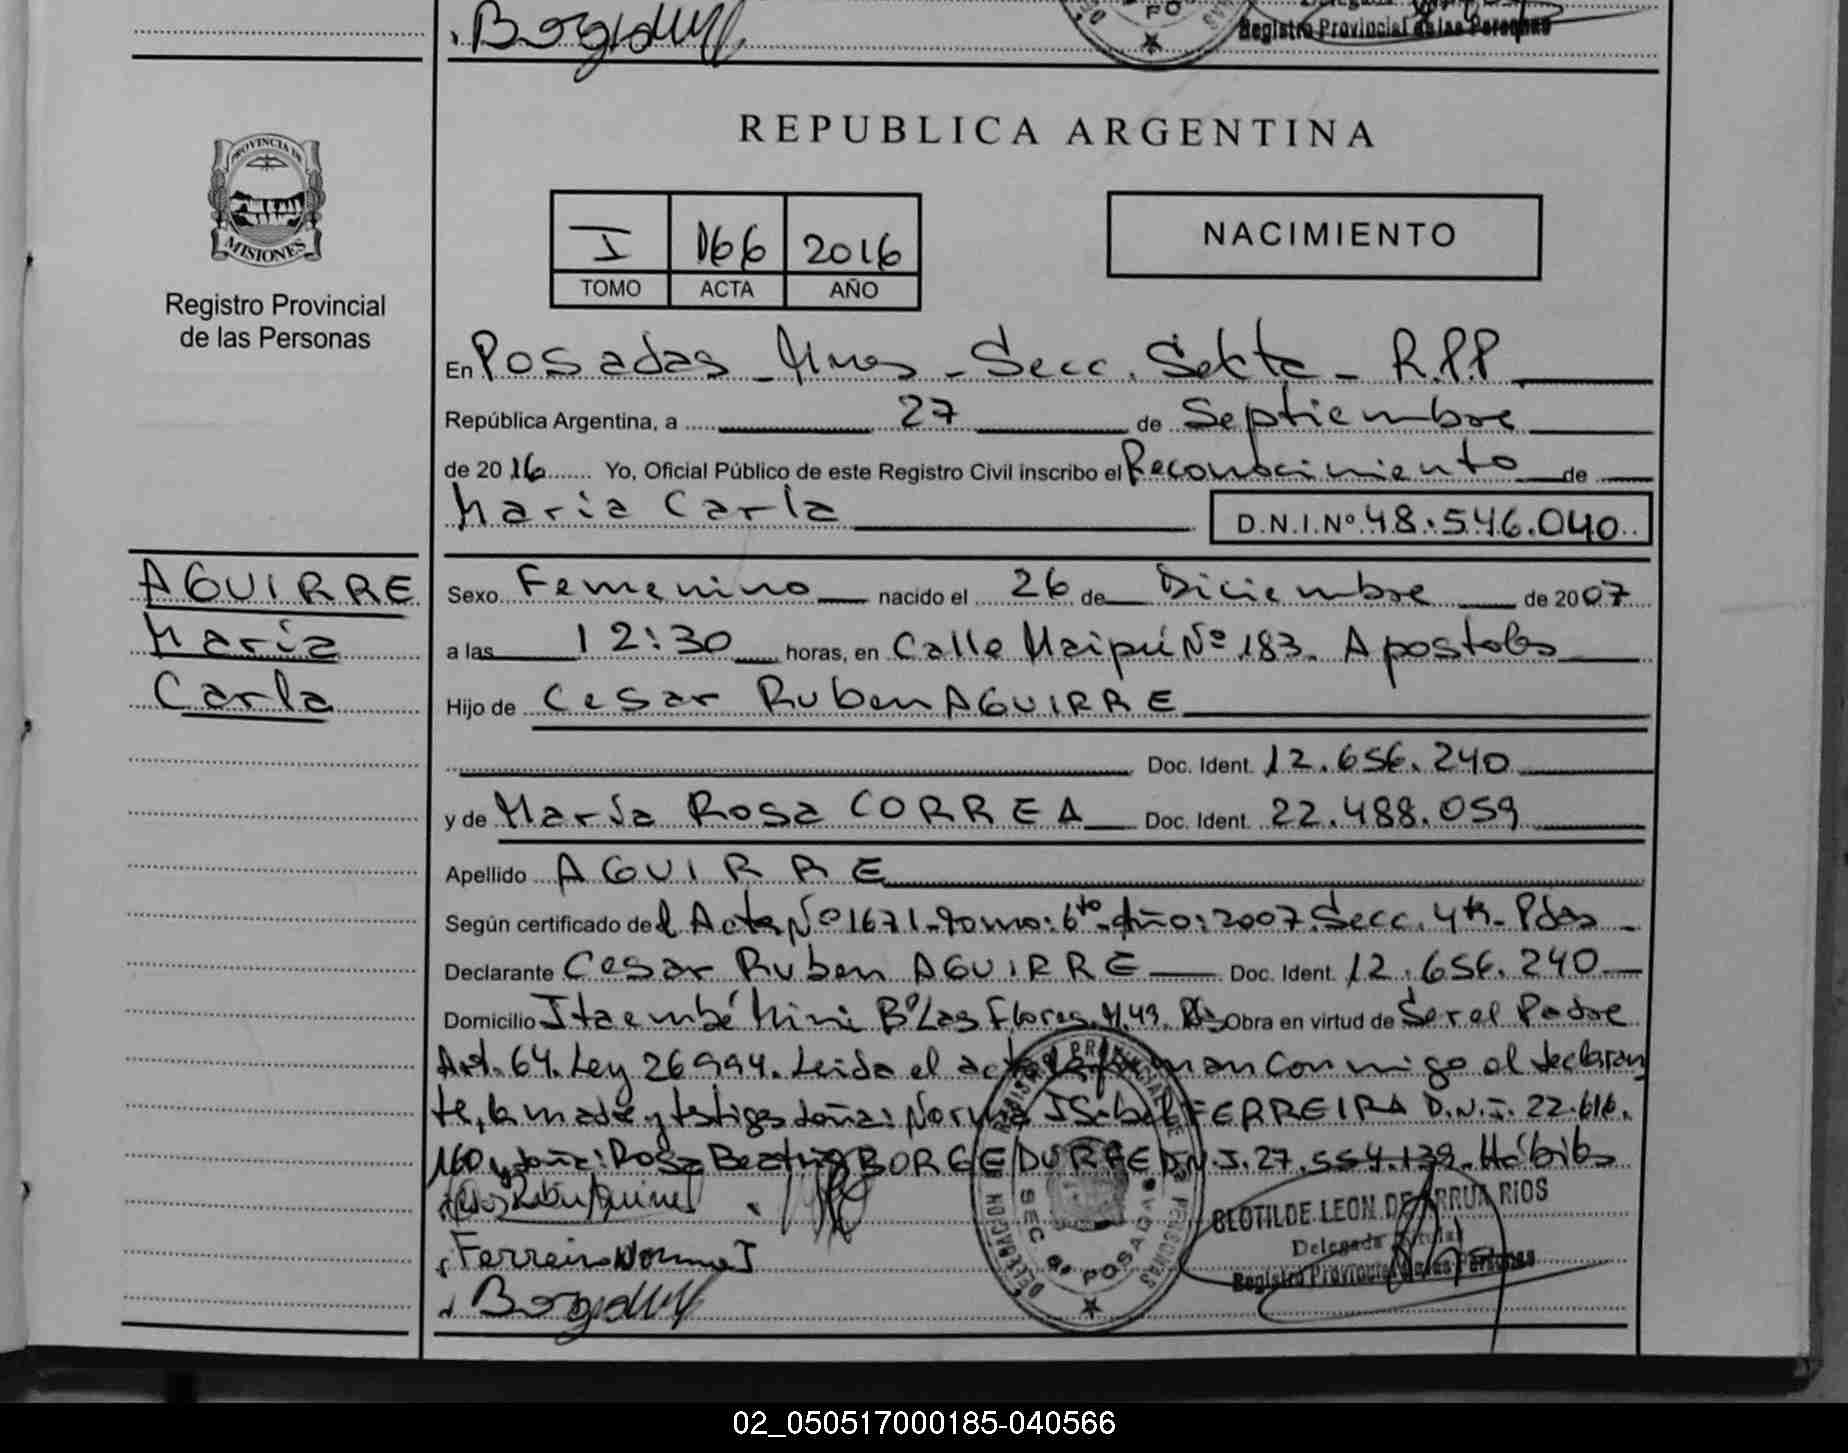 Registro Provincial de las Personas
REPUBLICA ARGENTINA
PROVINCIA DE
MISIONES
Registro Provincial
de las Personas
I 166 2016
TOMO ACTA AÑO
NACIMIENTO
En Posadas - Mnes - Secc. Sexta - R.P.P
República Argentina, a 27 de Septiembre
de 2016 Yo, Oficial Público de este Registro Civil inscribo el Reconocimiento de
María Carla D.N.I.Nº 48.546.040
AGUIRRE
María
Carla
Sexo Femenino nacido el 26 de Diciembre de 2007
a las 12:30 horas, en Calle Maipú Nº 183. Apostoles
Hijo de Cesar Ruben AGUIRRE
Doc. Ident. 12.656.240
y de María Rosa CORREA Doc. Ident. 22.488.059
Apellido AGUIRRE
Según certificado del Acta Nº 1671. Tomo: 6to. Año: 2007. Secc. 4ta. Pdas
Declarante Cesar Ruben AGUIRRE Doc. Ident. 12.656.240
Domicilio Itaembé Mini Bº Las Flores. M.49. Pdas Obra en virtud de Ser el Padre
Art. 64. Ley 26994. Leída el acta la firman conmigo el declaran
te, la madre y testigos doña: Norma Isabel FERREIRA D.N.I. 22.616.
160 y doña: Rosa Beatriz BORGE DURRE D.N.I. 27.554.139. Hábiles
CLOTILDE LEON DE ARRUA RIOS
Delegada Titular
Registro Provincial de las Personas
Ferreira Norma I
SEC 6ª POSADAS
02_050517000185-040566